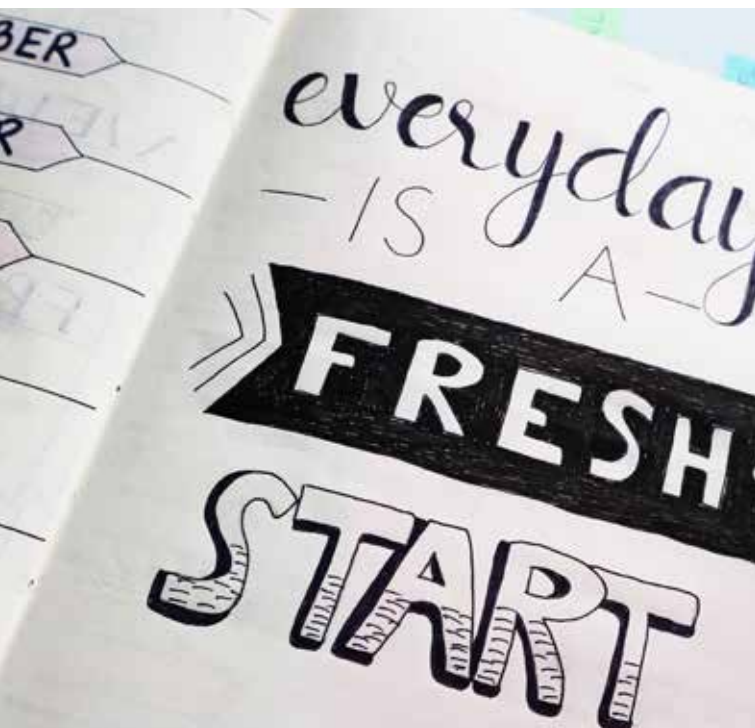 BER
R
everyday
– IS A –
FRESH
START